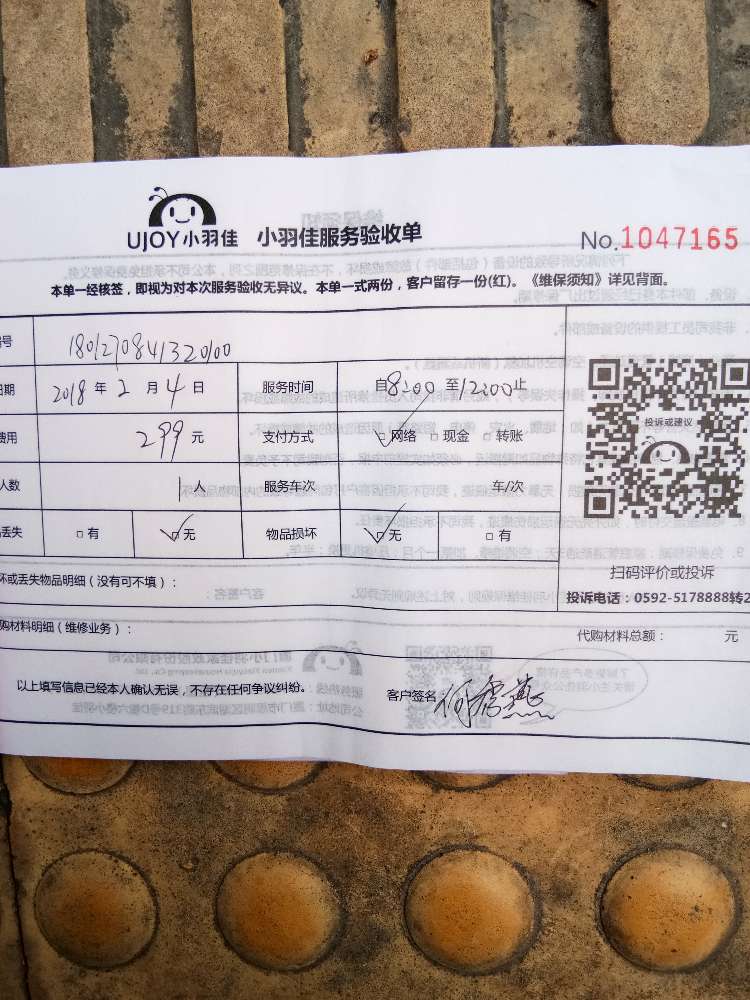 UJOY小羽佳 小羽佳服务验收单 No.1047165
本单一经核签，即视为对本次服务验收无异议。本单一式两份，客户留存一份(红)。《维保须知》详见背面。
号 1801270841320100
期 2018年2月4日 服务时间 自8:00至12:00止
费用 299元 支付方式 ☑网络 □现金 □转账
人数 1人 服务车次 车/次
丢失 □有 ☑无 物品损坏 ☑无 □有
投诉或建议
坏或丢失物品明细（没有可不填）：
扫码评价或投诉
投诉电话：0592-5178888转2
购材料明细（维修业务）：
代购材料总额： 元
以上填写信息已经本人确认无误，不存在任何争议纠纷。 客户签名